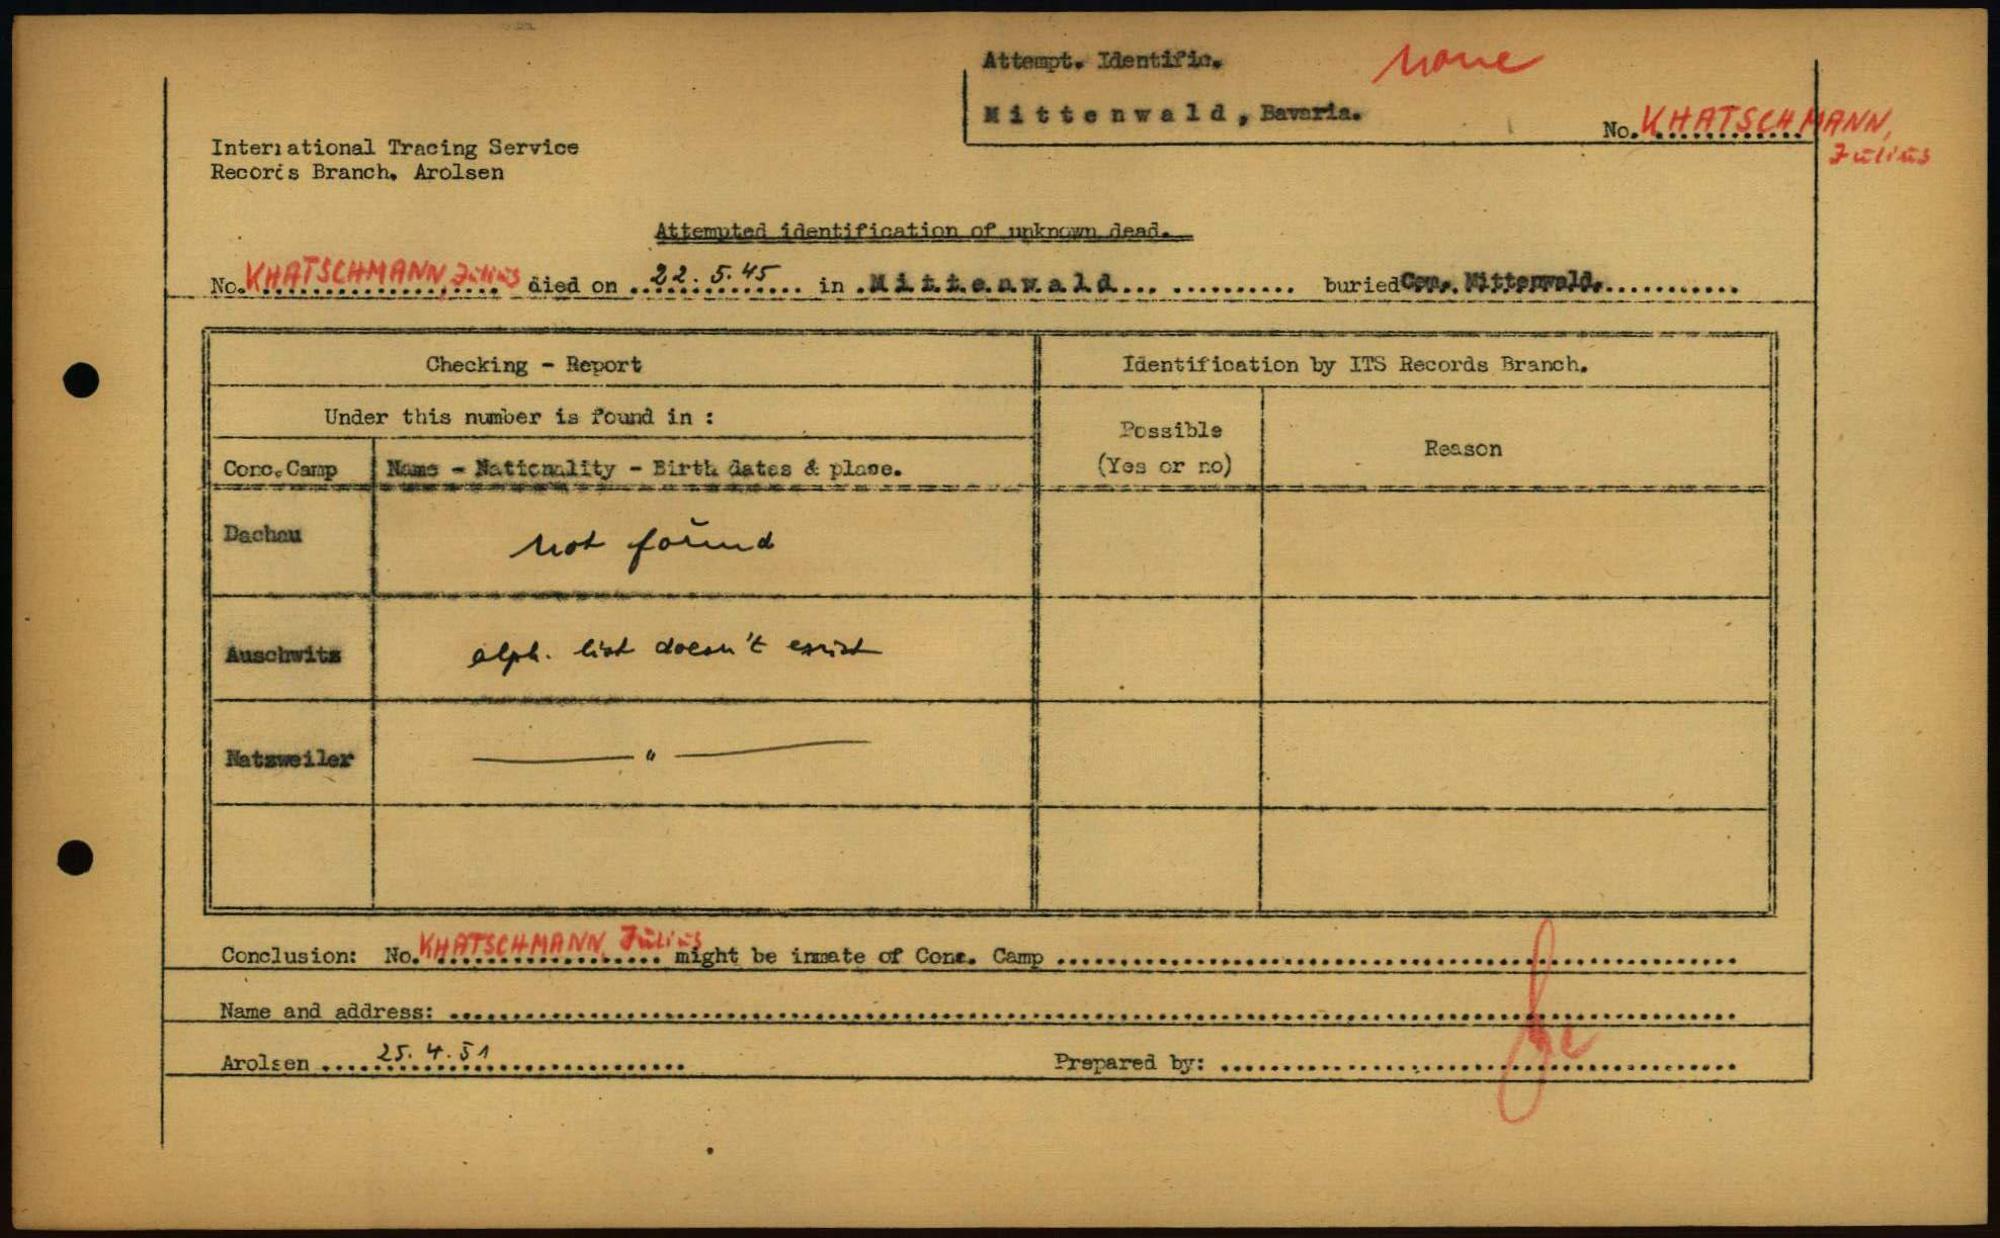 Attempt. Identific. none
Mittenwald, Bavaria.
No. KHATSCHMANN,
Julius
International Tracing Service
Records Branch, Arolsen
Attempted identification of unknown dead.
No. KHATSCHMANN, Julius died on 22. 5. 45 in Mittenwald buried Cem. Mittenwald.
Checking - Report
Identification by ITS Records Branch.
Under this number is found in :
Possible
(Yes or no)
Reason
Conc. Camp
Name - Nationality - Birth dates & place.
Dachau
not found
Auschwitz
alph. list doesn't exist
Natzweiler
"
Conclusion: No. KHATSCHMANN, Julius might be inmate of Conc. Camp
Name and address:
Arolsen 25. 4. 51
Prepared by: